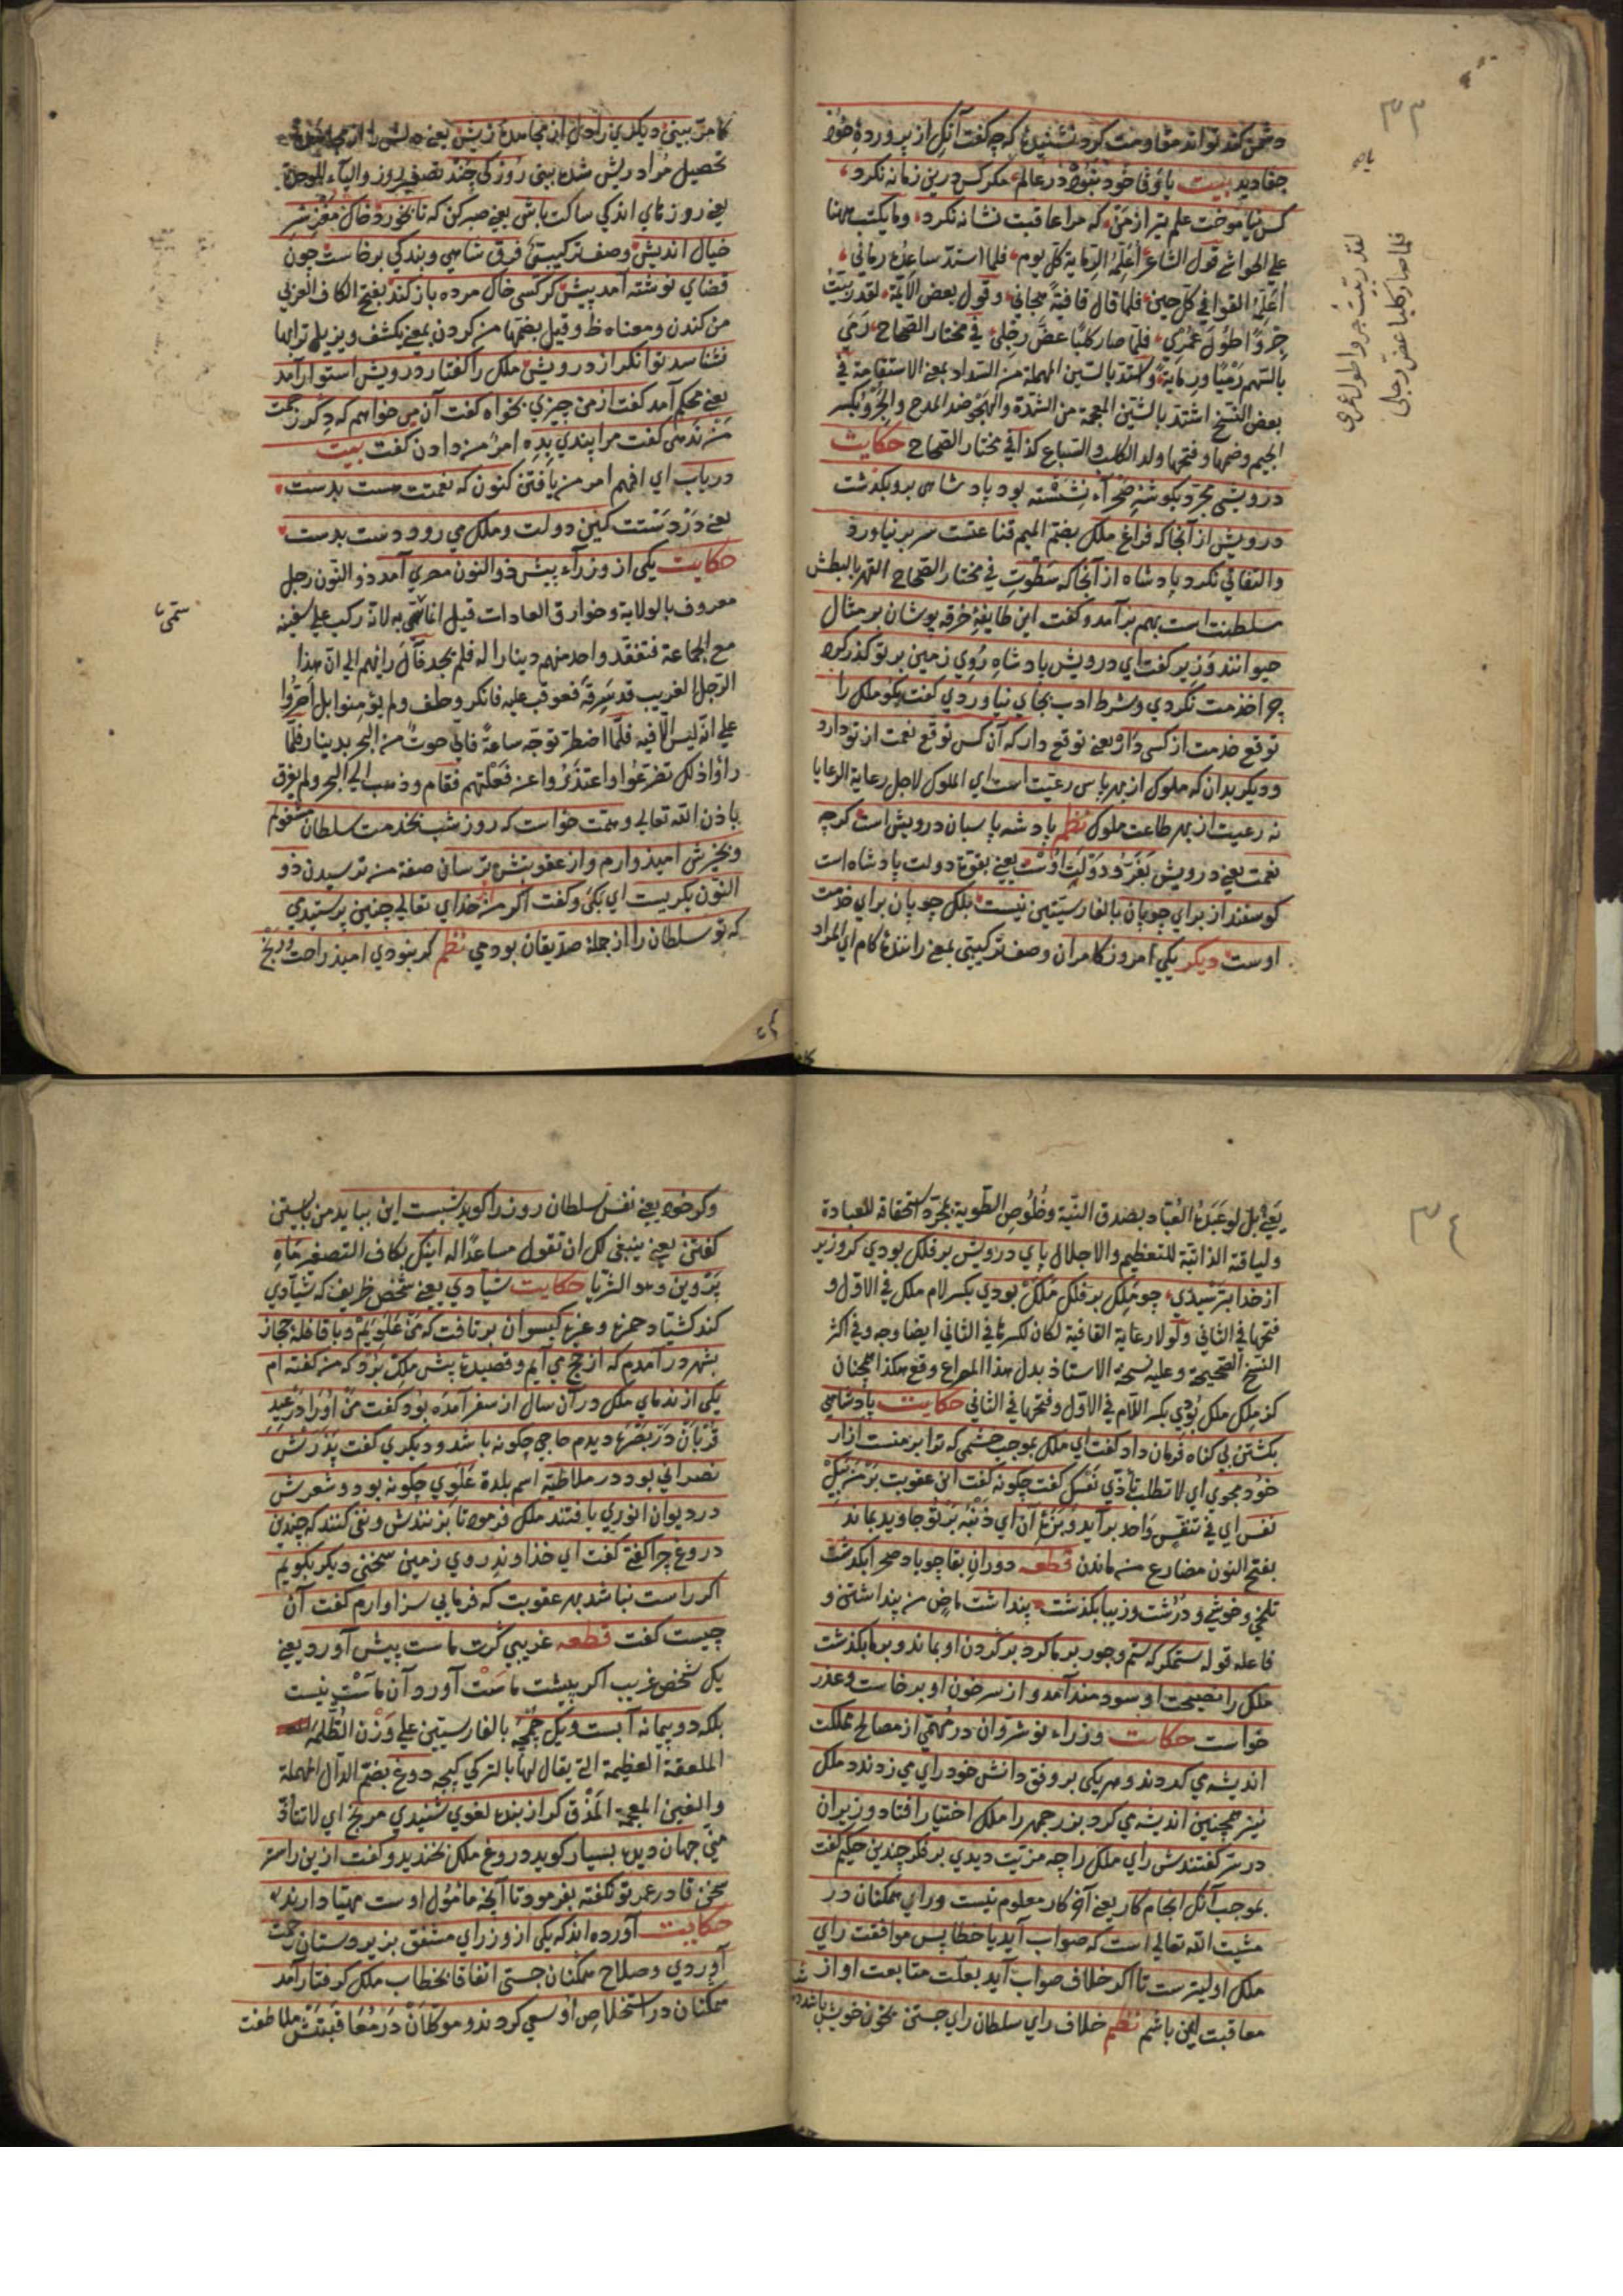 ٣٣
دشمن کند تواند مقاومت کرد نشنیدهٔ که چه گفت آنک از پروردهٔ خود
جفا دید بیت یا وفا خود نبود در عالم مکر کس درین زمانه نکرد
کس نیاموخت علم تیر از من که مرا عاقبت نشانه نکرد وما یکتب ههنا
علی الحواشی قول الشاعر أعلمه الرمایة کل یوم فلما استد ساعده رمانی
أعلمه القوافی کل حین فلما قال قافیة هجانی وقول بعض الأئمة لقد ربیت
جروا طول عمری فلما صار کلبا عض رجلی فی مختار الصحاح رمی
بالسهم رمیا ورمایة واستد بالسین المهملة من السداد بمعنی الاستقامة فی
بعض النسخ اشتد بالشین المعجمة من الشدة والهجو ضد المدح والجرو بکسر
الجیم وضمها وفتحها ولد الکلب والسباع کذا فی مختار الصحاح حکایت
درویشی مجرد بکوشهٔ صحرآء نشسته بود پادشاهی برو بکذشت
درویش از آنجا که فراغ ملک بضم المیم قناعتست سر بر نیاورد
والتفاتی نکرد پادشاه از آنجا که سطوت فی مختار الصحاح القهر بالبطش
سلطنت است بهم برآمد وکفت این طایفهٔ خرقه پوشان بر مثال
حیوانند وزیر کفت ای درویش پادشاه روی زمین بر تو کذر کرد
چرا خدمت نکردی وشرط ادب بجای نیاوردی کفت بکو ملک را
توقع خدمت از کسی دار یعنی توقع دار که آن کس توقع نعمت از تو دارد
ودیکر بدان که ملوک از بهر پاس رعیت است ای الملوک لاجل رعایة الرعایا
نه رعیت از بهر طاعت ملوک نظم پادشه پاسبان درویش است کرچه
نعمت یعنی درویش بفر ودولت اوست یعنی بقوة دولت پادشاه است
کوسفند از برای چوپان بالفارسیتین نیست بلک چوپان برای خدمت
اوست دیکر یکی امروز کامران وصف ترکیبی بمعنی رانندهٔ کام ای المراد
لقد ربیت جروا طول عمری
فلما صار کلبا عض رجلی
کامر بینی دیکری را دل از مجاهدهٔ ریش یعنی
تحصیل مراد ریش شده بینی روزکی چند تصغیر روز والیآء للوحدة
یعنی روزهای اندکی ساکت باش یعنی صبر کن که تا بخورد خاک مغز سر
خیال اندیش وصف ترکیبی فرق شاهی وبندکی برخاست چون
قضای نوشته آمد پیش کر کسی خاک مرده باز کند بفتح الکاف العربی
من کندن ومعناه ظ وقیل بضمها من کردن بمعنی یکشف ویزیل ترابها
نشناسد توانکر از درویش ملک را کفتار درویش استوار آمد
یعنی محکم آمد کفت از من چیزی بخواه کفت آن می خواهم که دکر زحمت
من ندهی کفت مرا پندی بده امر من دادن کفت بیت
دریاب ای افهم امر من یافتن کنون که نعمتت هست بدست
یعنی در دستت کین دولت وملک می رود دست بدست
حکایت یکی از وزرآء پیش ذو النون مصری آمد ذو النون رجل
معروف بالولایة وخوارق العادات قیل انما سمی به لانه رکب علی سفینة
مع الجماعة فتفقد واحد منهم دینارا له فلم یجد فآل رأیهم الی ان هذا
الرجل الغریب قد سرقه فعوقب علیه فانکر وحلف ولم یؤمنوا بل اصروا
علی انه لیس الا فیه فلما اضطر توجه ساعة فاتی حوت من البحر بدینار فلما
رأوا ذلک تضرعوا واعتذروا عن فعلتهم فقام وذهب الی البحر ولم یغرق
باذن الله تعالی وهمت خواست که روز شب بخدمت سلطان مشغولم
وبخیرش امیذوارم واز عقوبتش ترسان صفة من ترسیدن ذو
النون بکریست ای بکی وکفت اکر من خدای تعالی چنین پرستیدی
که تو سلطان را از جملهٔ صدیقان بودمی نظم کر بنودی امیذ راحت ورنج
ستمی
٣٤
یعنی بل لو عبدهٔ العباد بصدق النیة وخلوص الطویة بمجرد استحقاقه للعبادة
ولیاقة الذاتیة للتعظیم والاجلال پای درویش بر فلک بودی کر وزیر
از خدا بترسیدی چو ملک بر فلک ملک بودی بکسر لام ملک فی الاول و
فتحها فی الثانی ولولا رعایة القافیة لکان لکسرها فی الثانی ایضا وجه وفی اکثر
النسخ الصحیحة وعلیه نسخة الاستاذ بدل هذا المصراع وقع هکذا همچنان
کز ملک ملک بودی بکسر اللام فی الاول وفتحها فی الثانی حکایت پادشاهی
بکشتن بی کناه فرمان داد کفت ای ملک بموجب خشمی که ترا بر منست آزار
خود مجوی ای لا تطلب تأذی نفسک کفت چکونه کفت این عقوبت بر من بیک
نفس ای فی تنفس واحد برآید وبزهٔ آن ای ذنبه بر تو جاوید بماند
بفتح النون مضارع من ماندن قطعه دوران بقا چو باد صحرا بکذشت
تلخی وخوشی ودرشت وزیبا بکذشت پنداشت ماض من پنداشتن و
فاعله قوله ستمکر که ستم وجور بر ما کرد بر کردن او بماند وبر ما بکذشت
ملک را نصیحت او سودمند آمد واز سر خون او برخاست وعذر
خواست حکایت وزراء نوشروان در مهمی از مصالح مملکت
اندیشه می کردند وهر یکی بر وفق دانش خود رای می زدند ملک
نیز همچنین اندیشه می کرد بزرجمهر را ملک اختیار افتاد وزیران
در سر کفتندش رای ملک را چه مزیت دیدی بر فکر چندین حکیم کفت
بموجب آنک انجام کار یعنی آخر کار معلوم نیست ورای همکنان در
مشیت الله تعالی است که صواب آید یا خطا پس موافقت رای
ملک اولیترست تا اکر خلاف صواب آید بعلت متابعت او از
معاقبت ایمن باشم نظم خلاف رای سلطان رای جستن بخون خویش باشد
وکر خود یعنی نفس سلطان روز را کوید شبست این بباید من بایستن
کفتن یعنی ینبغی لک ان تقول مساعدا له اینک بکاف التصغیر ماه
پروین وهو الثریا حکایت شیادی یعنی شخص ظریف که شیادی
کند کیسوان بر تافت که من علویم وبا قافلهٔ حجاز
بشهر درآمدم که از حج می آیم وقصیدهٔ پیش ملک برد که من کفته ام
یکی از ندمای ملک در آن سال از سفر آمده بود کفت من اورا در عید
قربان در بصره دیدم حاجی چکونه باشد ودیکری کفت پدرش
نصرانی بود در ملاطیه اسم بلدة علوی چکونه بود وشعرش
در دیوان انوری یافتند ملک فرمود تا بزنندش ونفی کنند که چندین
دروغ چرا کفتی کفت ای خداوند روی زمین سخنی دیکر بکویم
اکر راست نباشد بهر عقوبت که فرمایی سزاوارم کفت آن
چیست کفت قطعه غریبی کرت ماست پیش آورد یعنی
یک شخص غریب اکر پیشت ماست آورد آن ماست نیست
بلکه دو پیمانه آبست ویک چمچه بالفارسیتین علی وزن الظلمة
الملعقة العظیمة التی یقال لها بالترکی کپچه دوغ بضم الدال المهملة
والغین المعجمة المذق کر از بنده لغوی شنیدی مرنج ای لا تتأذ
منی جهان دیده بسیار کوید دروغ ملک بخندید وکفت ازین راستر
سخن تا در عمر تو نکفتهٔ بفرمود تا آنچه مأمول اوست مهیا دارند
حکایت آورده اند که یکی از وزرای مشفق بزیردستان رحمت
آوردی وصلاح همکنان جستی اتفاقا بخطاب ملک کرفتار آمد
همکنان در استخلاص او سعی کردند وموکلان در معاقبتش ملاطفت